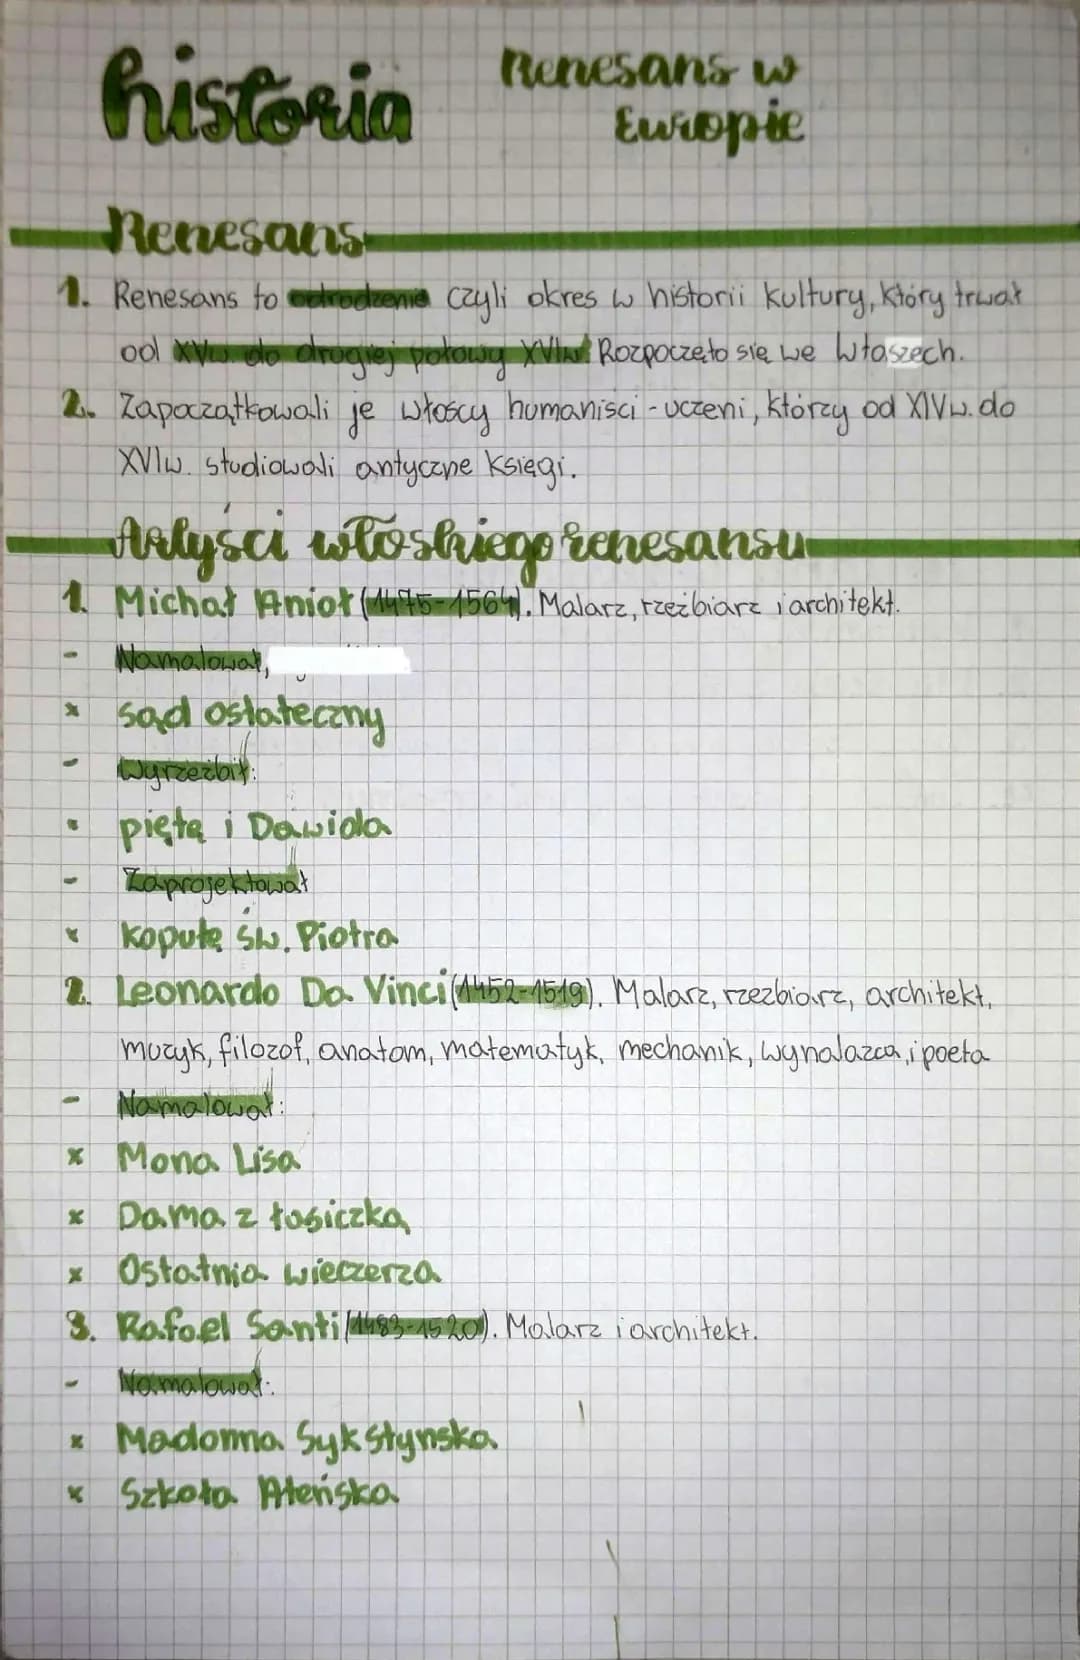 historia
Renesans w
Europie
Renesans
1. Renesans to odrodzenie czyli okres w historii kultury, który trwał
od XVw do drugiej połowy XVIw. Rozpoczęto się we Włoszech.
2. Zapoczątkowali je włoscy humaniści - uczeni, którzy od XIVw. do
XVIw. studiowali antyczne księgi.
Artyści włoskiego renesansu
1. Michał Anioł (1475-1564). Malarz, rzeźbiarz i architekt.
- Namalował,
x sąd ostateczny
- Wyrzeźbił:
• piętą i Dawida
- Zaprojektował
x kopułę św. Piotra
2. Leonardo Da Vinci (1452-1519). Malarz, rzezbiarz, architekt,
muzyk, filozof, anatom, matematyk, mechanik, wynalazca, i poeta
- Namalował:
x Mona Lisa
x Dama z łasiczką
x Ostatnia wieczerza
3. Rafael Santi (1483-1520). Malarz i architekt.
- Namalował:
x Madonna Sykstyńska
x Szkoła Ateńska